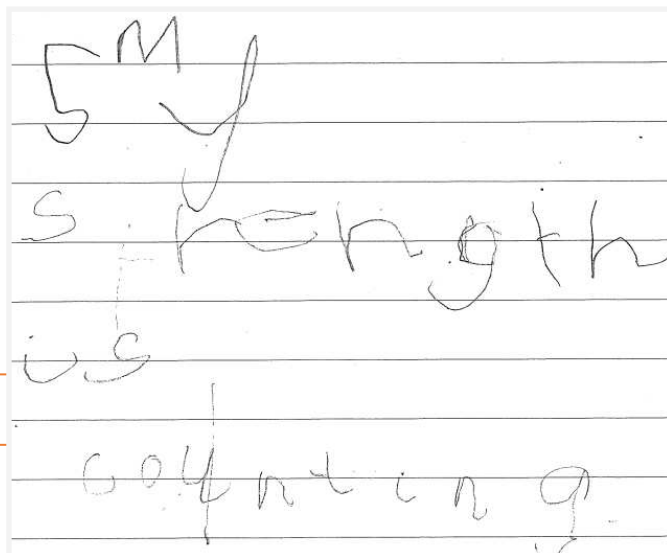 5 My
strength
is
counting